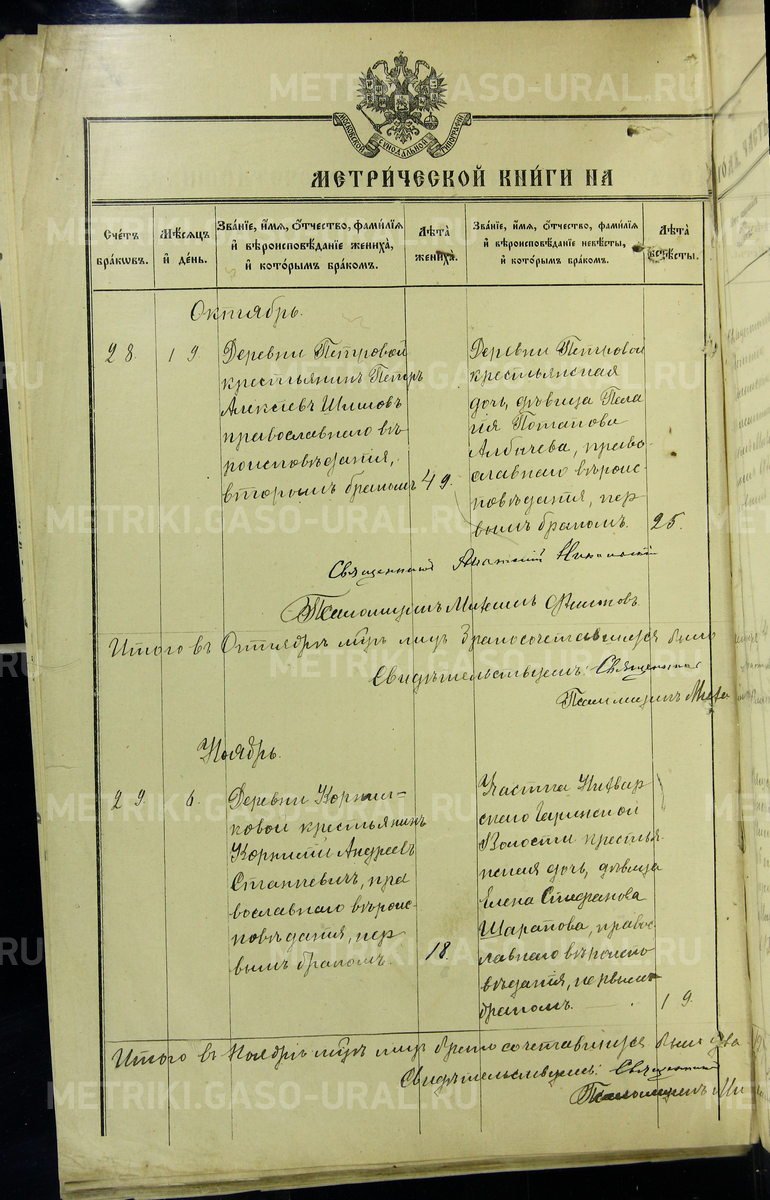 МОСКОВСКОЙ СУНОДАЛЬНОЙ ТИПОГРАФІИ
МЕТРИ́ЧЕСКОЙ КНИ́ГИ НА
Сче́тъ бра́кѡвъ.
Мѣ́сѧцъ и҆ де́нь.
Зва́нїе, и҆́мѧ, ѻ҆́тчество, фами́лїѧ и҆ вѣроисповѣ́данїе жениха̀, и҆ кото́рымъ бра́комъ.
Лѣ̑та жениха̀.
Зва́нїе, и҆́мѧ, ѻ҆́тчество, фами́лїѧ и҆ вѣроисповѣ́данїе невѣ́сты, и҆ кото́рымъ бра́комъ.
Лѣ̑та невѣ́сты.
Октябрь.
28.
19
Деревни Петровой
крестьянинъ Петръ
Алексѣевъ
православнаго вѣ-
роисповѣданія,
вторымъ бракомъ
49.
Деревни Петровой
крестьянская
дочь, дѣвица Пела
гія Потапова
Албычева, право-
славнаго вѣроис-
повѣданія, пер
вымъ бракомъ.
25.
Священникъ Никольскій
Псаломщикъ
Итого въ Октябрѣ мцѣ лицъ бракосочетавшихся было
Свидѣтельствуемъ: Священникъ
Псаломщикъ
Ноябрь.
29.
6.
Деревни Корнил-
ковой крестьянинъ
Андреевъ
Станкевичъ, пра
вославнаго вѣроис-
повѣданія, пер
вымъ бракомъ.
18.
Участка
скаго Гаринской
Волости крестья-
нская дочь, дѣвица
Елена Стефанова
Шарапова, правос
лавнаго вѣроиспо
вѣданія, первымъ
бракомъ.
19.
Итого въ Ноябрѣ мцѣ лицъ бракосочетавшихся было два
Свидѣтельствуемъ: Священникъ
Псаломщикъ
METRIKI.GASO-URAL.RU